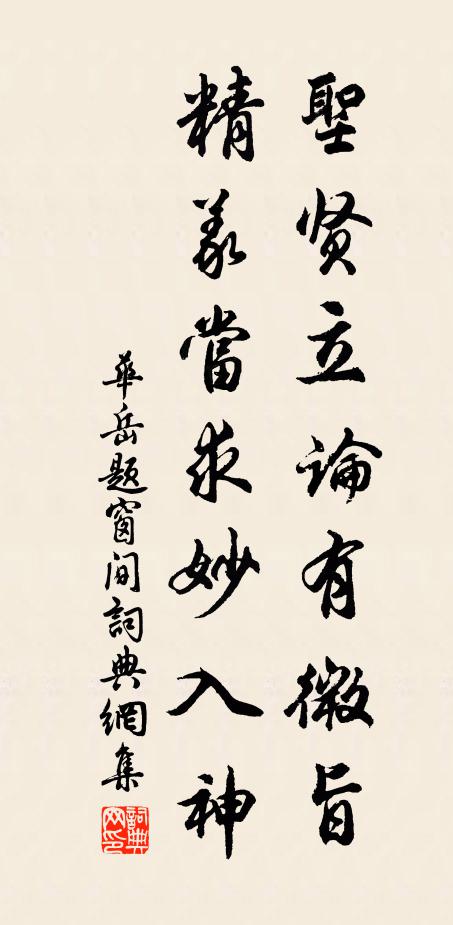 聖贤立論有微旨
精義當求妙入神
華岳題窗间詞典網集
詞典網印